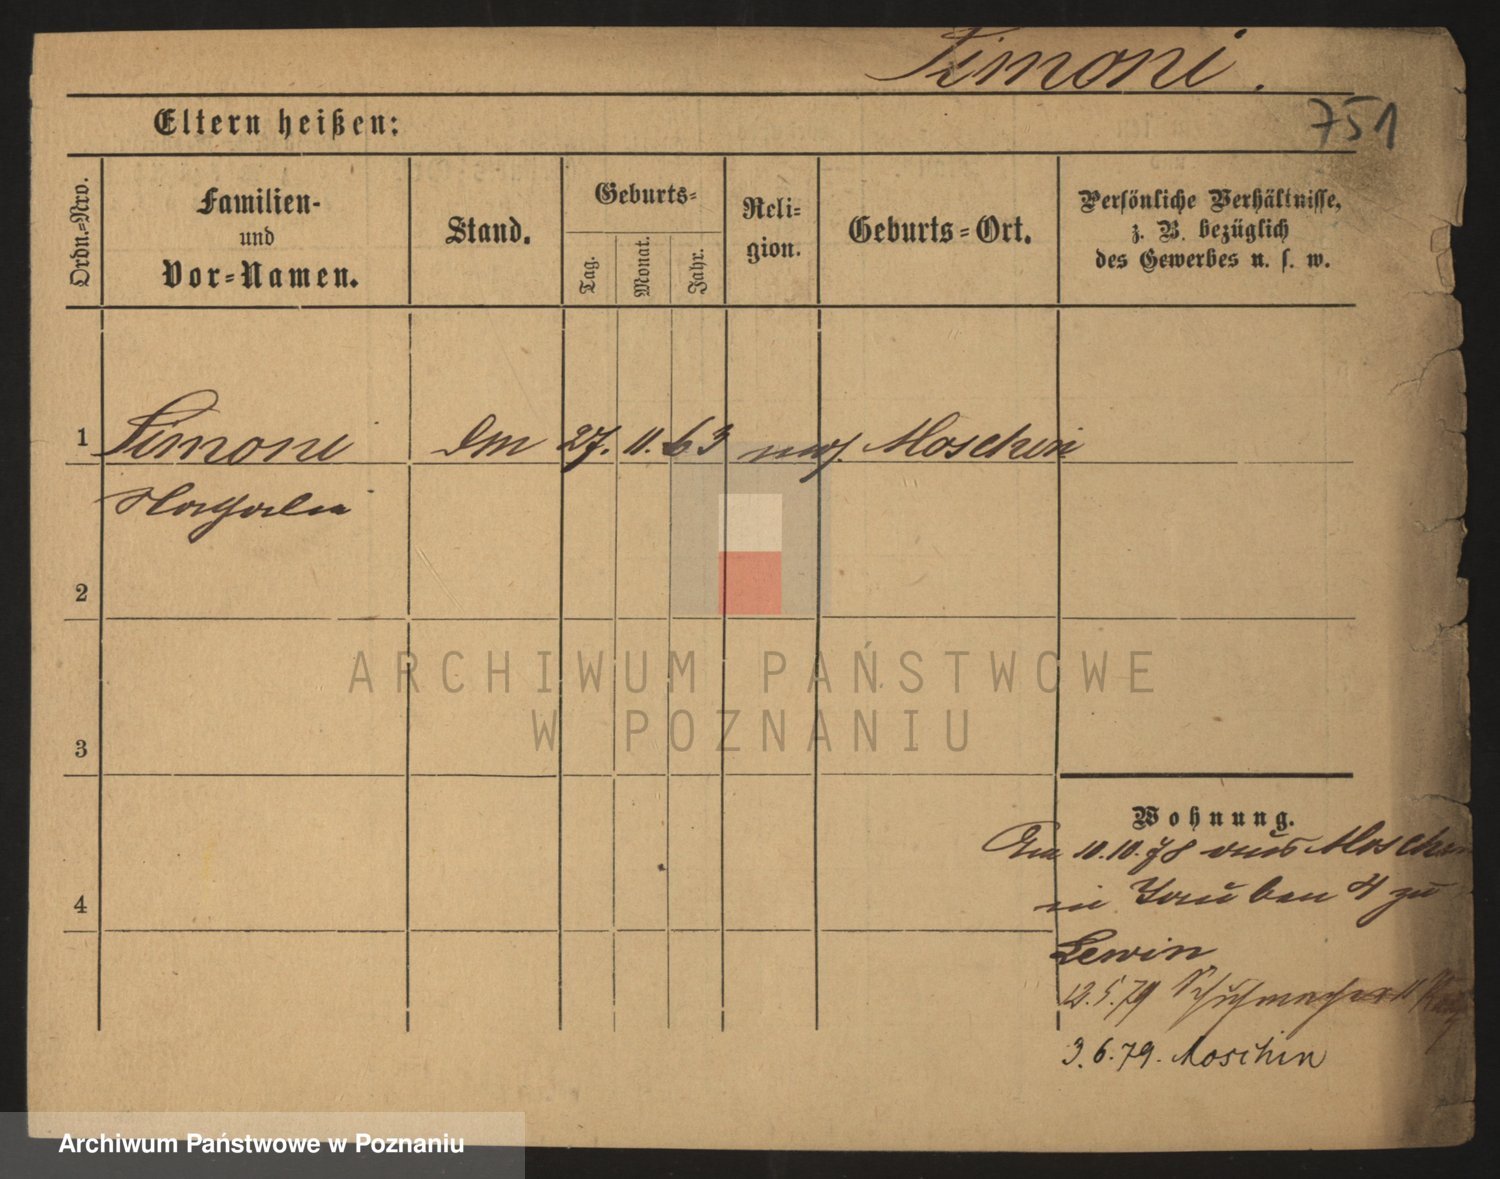 Simoni.
751
Eltern heißen:
Ordn.=Nro.
Familien-
und
Vor=Namen.
Stand.
Geburts=
Tag.
Monat.
Jahr.
Reli=
gion.
Geburts=Ort.
Persönliche Verhältnisse,
z. B. bezüglich
des Gewerbes u. s. w.
1
Simoni
27. 11. 63
Moschin
Nathalie
2
3
4
Wohnung.
10.10.78 aus Moschin
4 zu
Lewin
12.5.79 Schuhmacher
3.6.79. Moschin
ARCHIWUM PAŃSTWOWE
W POZNANIU
Archiwum Państwowe w Poznaniu